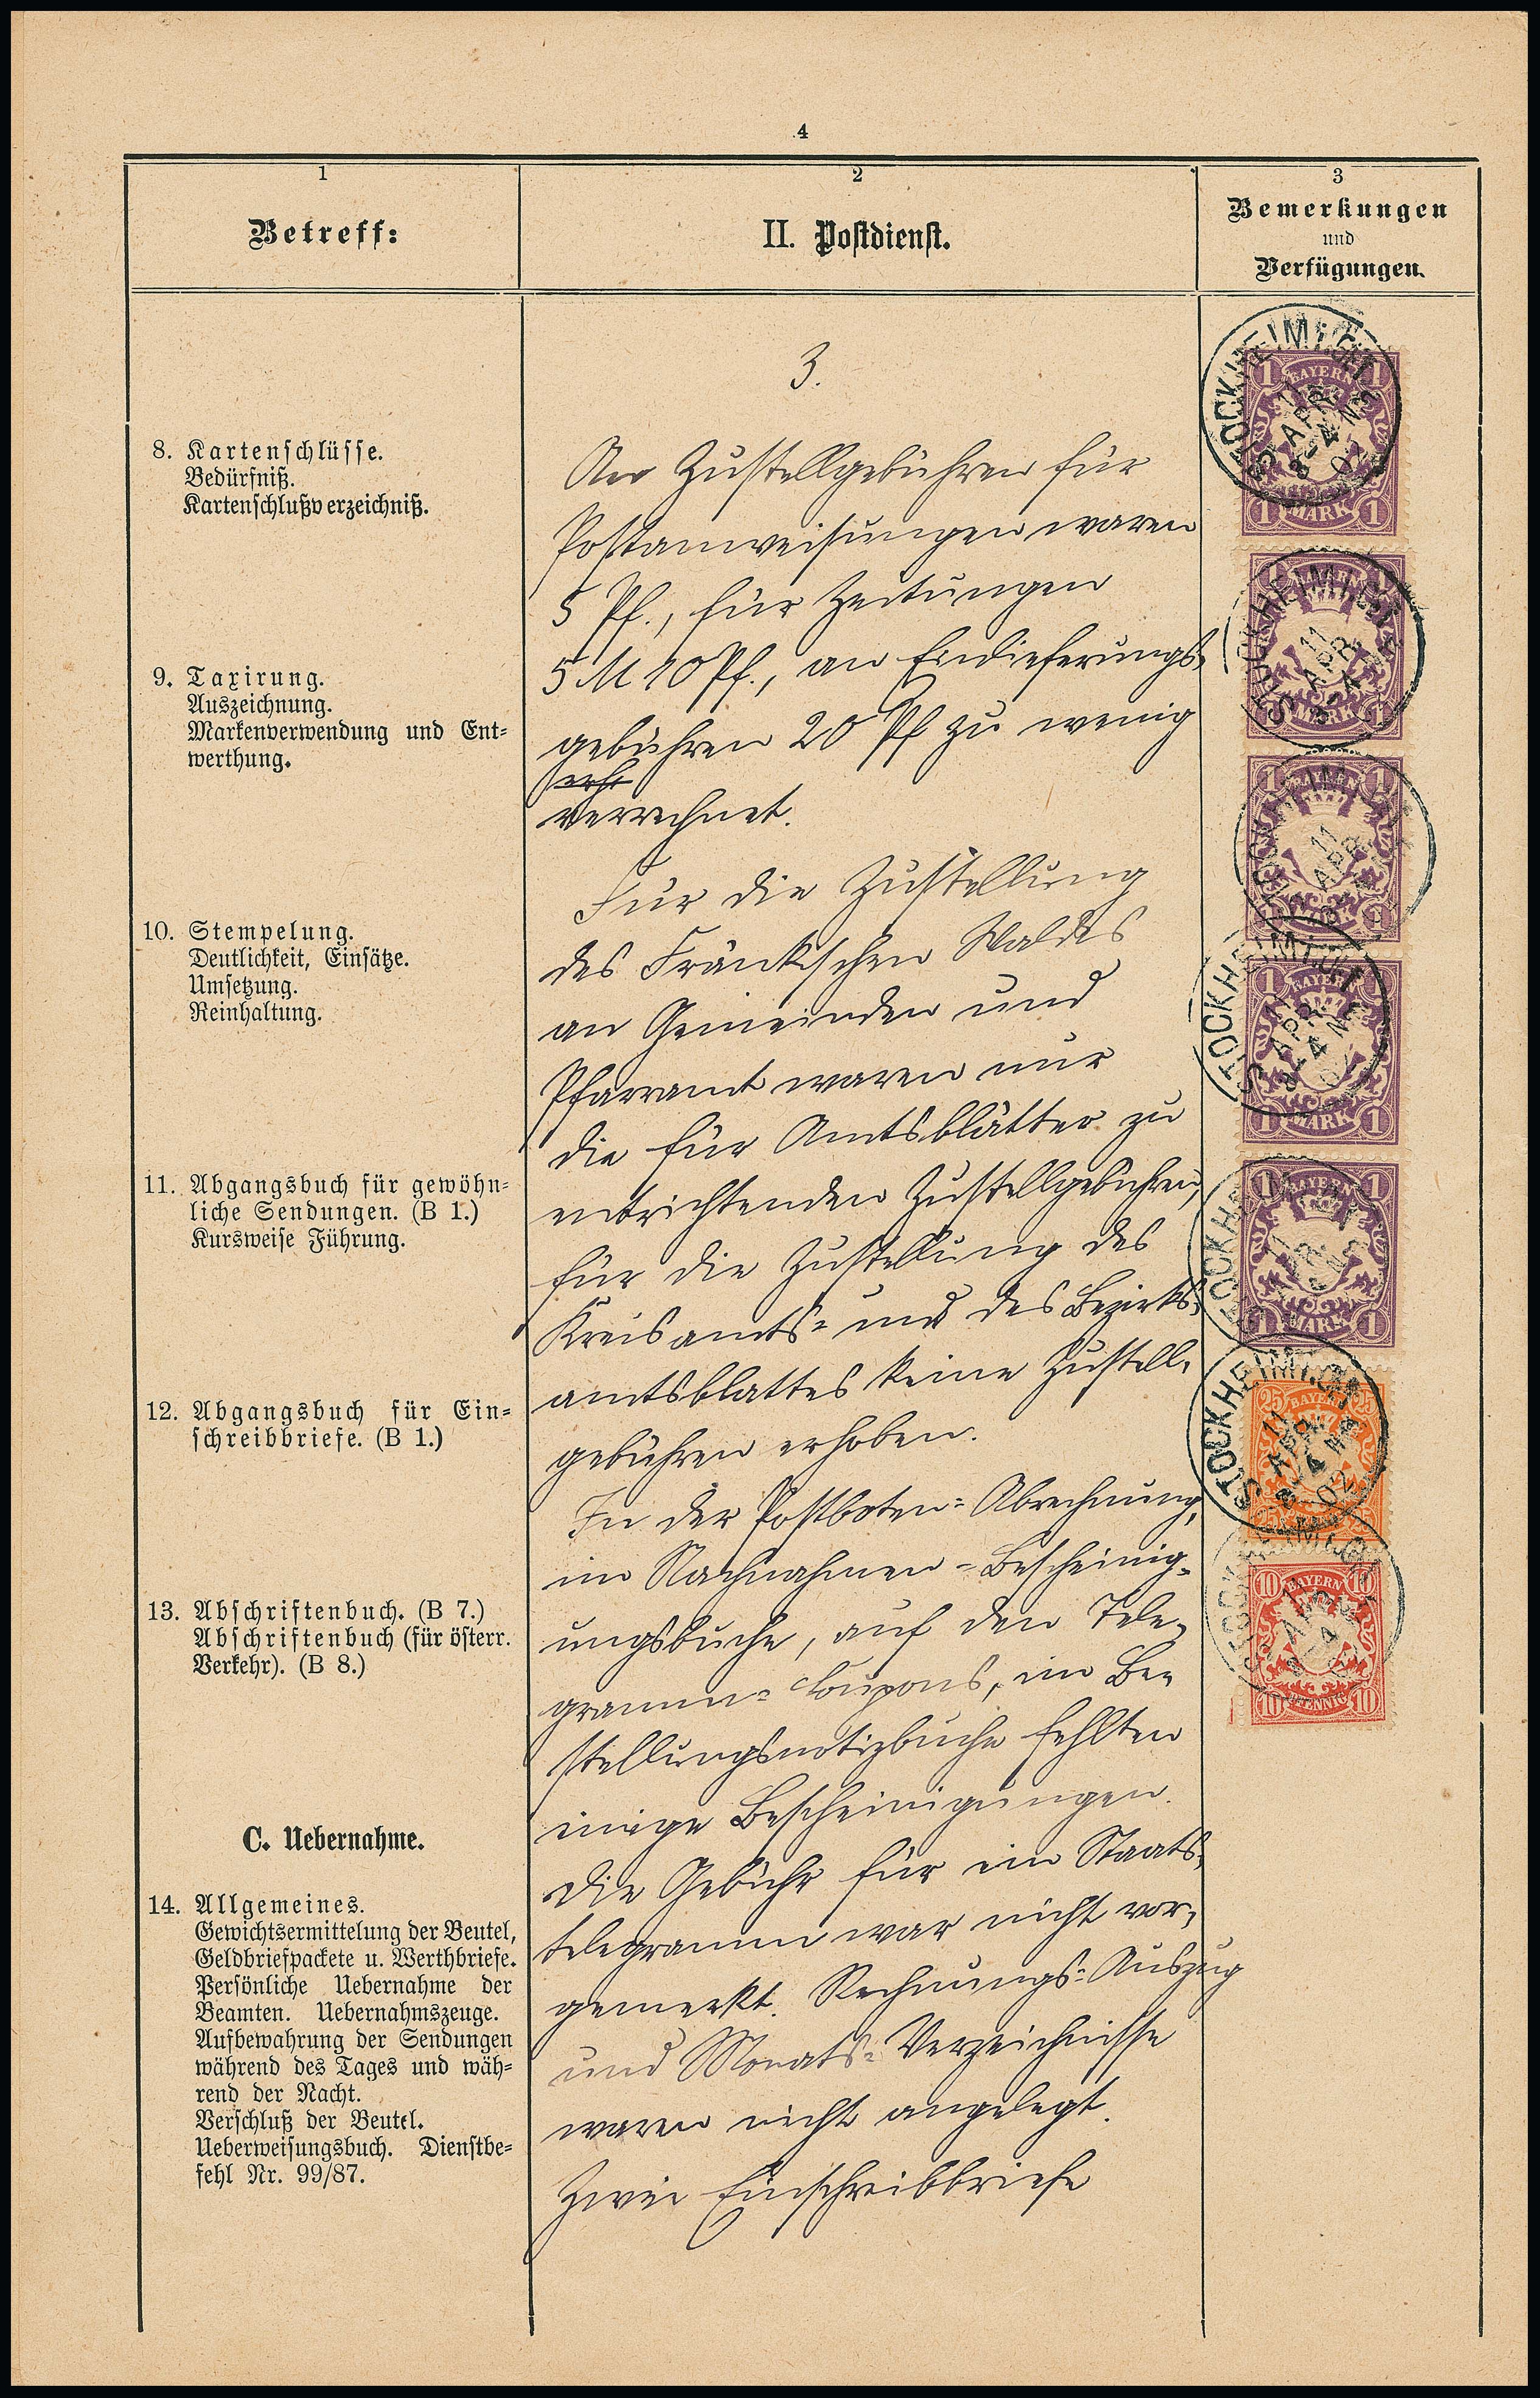 4
1
Betreff:
2
II. Postdienst.
3
Bemerkungen
und
Verfügungen.
8. Kartenschlüsse.
Bedürfniß.
Kartenschlußverzeichniß.
9. Taxirung.
Auszeichnung.
Markenverwendung und Ent=
werthung.
10. Stempelung.
Deutlichkeit, Einsätze.
Umsetzung.
Reinhaltung.
11. Abgangsbuch für gewöhn=
liche Sendungen. (B 1.)
Kursweise Führung.
12. Abgangsbuch für Ein=
schreibbriefe. (B 1.)
13. Abschriftenbuch. (B 7.)
Abschriftenbuch (für österr.
Verkehr). (B 8.)
C. Uebernahme.
14. Allgemeines.
Gewichtsermittelung der Beutel,
Geldbriefpackete u. Werthbriefe.
Persönliche Uebernahme der
Beamten. Uebernahmszeuge.
Aufbewahrung der Sendungen
während des Tages und wäh=
rend der Nacht.
Verschluß der Beutel.
Ueberweisungsbuch. Dienstbe=
fehl Nr. 99/87.
3.
An Zustellgebühren für
Postanweisungen waren
5 Pf., für Zeitungen
5 M 10 Pf., an Einlieferungs=
gebühren 20 Pf zu wenig
verrechnet.
Für die Zustellung
des Fränkischen Waldes
an Gemeinden und
Pfarramt waren nur
die für Amtsblätter zu
entrichtenden Zustellgebühren,
für die Zustellung des
Kreisamts= und des Bezirks=
amtsblattes keine Zustell=
gebühren erhoben.
In der Postboten=Abrechnung,
im Nachnahmen=Bescheinig=
ungsbuche, auf den Tele=
gramm=Coupons, im Be=
stellungsnotizbuche fehlten
einige Bescheinigungen.
Die Gebühr für ein Staats=
telegramm war nicht vor=
gemerkt. Rechnungs=Auszug
und Monats=Verzeichnisse
waren nicht angelegt.
Zwei Einschreibbriefe
1 BAYERN 1
1 MARK 1
STOCKHEIM
11
APR.
3-4 N
02
1 BAYERN 1
1 MARK 1
STOCKHEIM
11
APR.
3-4
1 1
STOCKHEIM
11
APR.
1 BAYERN 1
1 MARK 1
STOCKHEIM
11
APR.
3-4 N
1 BAYERN 1
1 MARK 1
STOCKHEIM
11
25 BAYERN 25
25 25
STOCKHEIM
11
APR.
3-4 N
02
10 BAYERN 10
10 PFENNIG 10